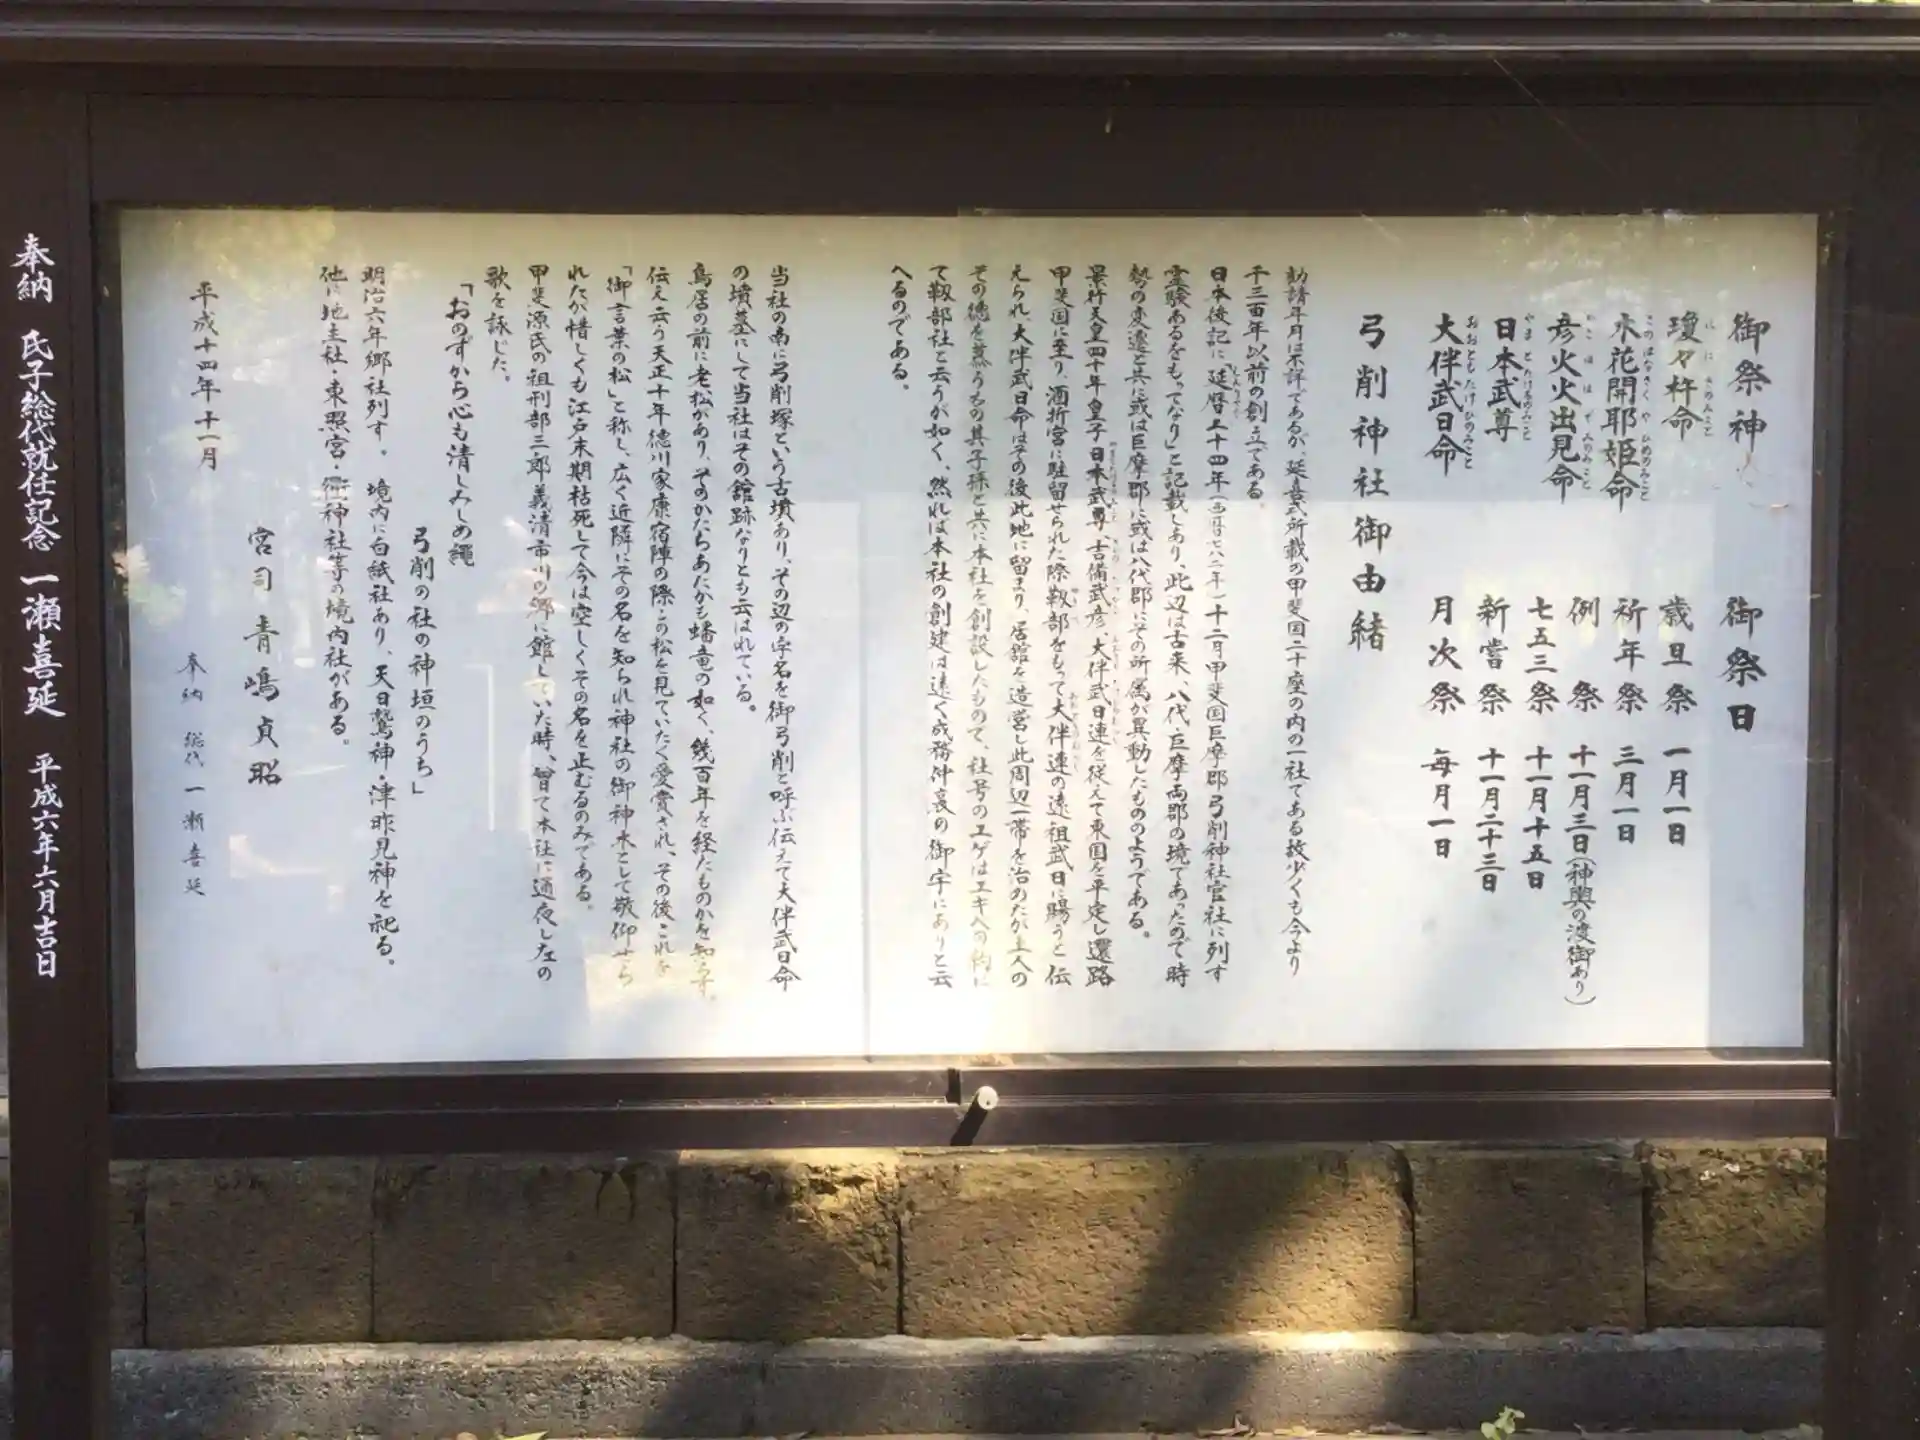 御祭神
瓊々杵命
木花開耶姫命
彦火火出見命
日本武尊
大伴武日命
御祭日
歳旦祭 一月一日
祈年祭 三月一日
例祭 十一月三日(神輿の渡御あり)
七五三祭 十一月十五日
新嘗祭 十一月二十三日
月次祭 毎月一日
弓削神社御由緒
勧請年月は不詳であるが、延喜式所載の甲斐国二十座の内の一社である故少くも今より
千三百年以前の創立である。
日本後記に「延暦二十四年(西暦七八二年)十二月甲斐国巨摩郡弓削神社官社に列す
霊験あるをもってなり」と記載しあり、此辺は古来、八代・巨摩両郡の境であったので時
勢の変遷と共に或は巨摩郡に或は八代郡にその所属が異動したもののようである。
景行天皇四十年皇子日本武尊、吉備武彦、大伴武日連を従えて東国を平定し還路
甲斐国に至り、酒折宮に駐留せられた際靱部をもって大伴連の遠祖武日に賜うと伝
えられ、大伴武日命はその後此地に留まり、居館を造営し此周辺一帯を治めたが土人の
その徳を慕うもの其子孫と共に本社を創設したもので、社号のユゲはユキベの約に
て靱部社と云うが如く、然れば本社の創建は遠く成務仲哀の御宇にありと云
へるのである。
当社の南に弓削塚という古墳あり、その辺の字名を御弓削と呼ぶ伝えて大伴武日命
の墳墓にして当社はその館跡なりとも云はれている。
鳥居の前に老松があり、そのかたちあたかも蟠竜の如く、幾百年を経たものかを知らず。
伝え云う天正十年徳川家康宿陣の際・この松を見ていたく愛賞され、その後これを
「御言葉の松」と称し、広く近隣にその名を知られ神社の御神木として敬仰せら
れたが惜しくも江戸末期枯死して今は空しくその名を止むるのみである。
甲斐源氏の祖刑部三郎義清市川の郷に館していた時、曾て本社に通夜し左の
歌を詠じた。
「おのずから心も清しみしめ縄
弓削の社の神垣のうち」
明治六年郷社列す。境内に白紙社あり、天日鷲神・津咋見神を祀る。
他に地主社・東照宮・衢神社等の境内社がある。
宮司 青嶋貞昭
平成十四年十一月
奉納 総代 一瀬喜延
奉納 氏子総代就任記念 一瀬喜延 平成六年六月吉日